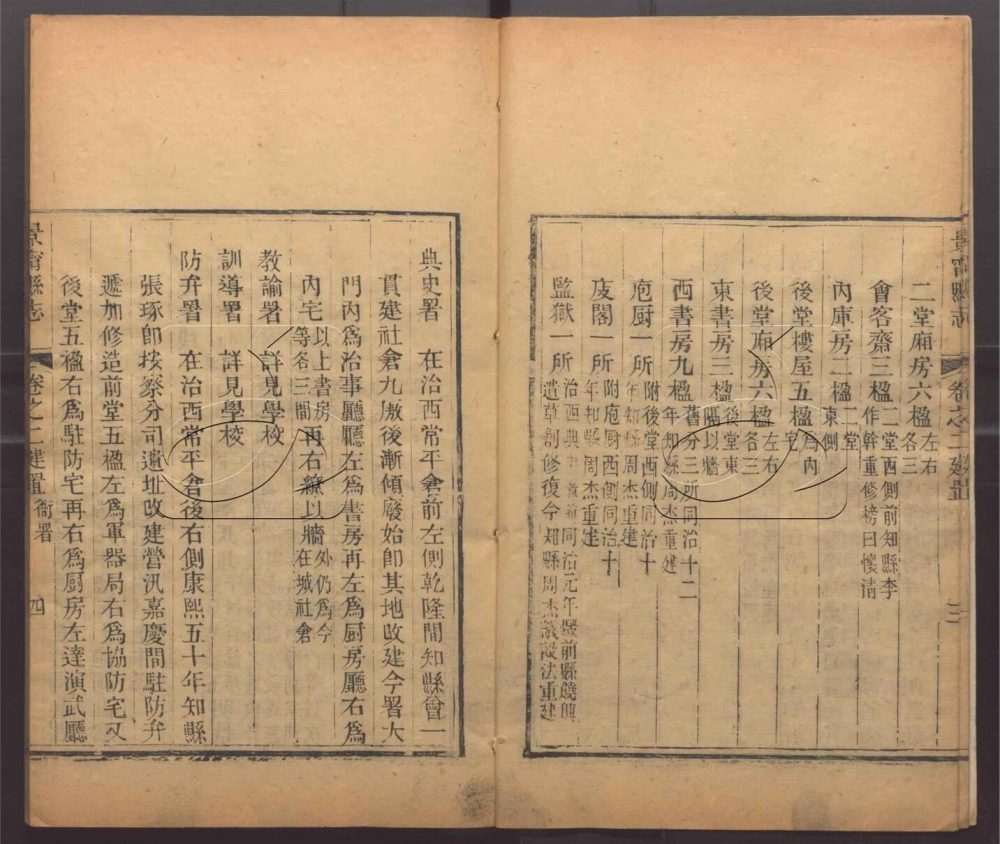 景甯縣志 卷之二 建置 三
二堂廂房六楹左右各三
會客齋三楹二堂西側前知縣李作幹重修榜曰懷淸
內庫房二楹二堂東側
後堂樓屋五楹爲內宅
後堂廂房六楹左右各三
東書房三楹後堂東隅以牆
西書房九楹舊分三所同治十二年知縣周杰重建
庖厨一所附後堂西側同治十年知縣周杰重建
庋閣一所附庖厨西同治十年知縣周杰重建
監獄一所治西典史署前同治元年燬前縣饒興遺草創修復今知縣周杰議設法重建
典史署 在治西常平倉前左側乾隆間知縣曾一
貫建社倉九廒後漸傾廢始卽其地改建今署大
門內爲治事廳廳左爲書房再左爲厨房廳右爲
內宅以上書房等各三間再右繚以牆外仍爲今在城社倉
教諭署 詳見學校
訓導署 詳見學校
防弁署 在治西常平倉後右側康熙五十年知縣
張琢卽按察分司遺址改建營汛嘉慶間駐防弁
遞加修造前堂五楹左爲軍器局右爲協防宅又
後堂五楹右爲駐防宅再右爲厨房左達演武廳
景甯縣志 卷之二 建置 衙署 四